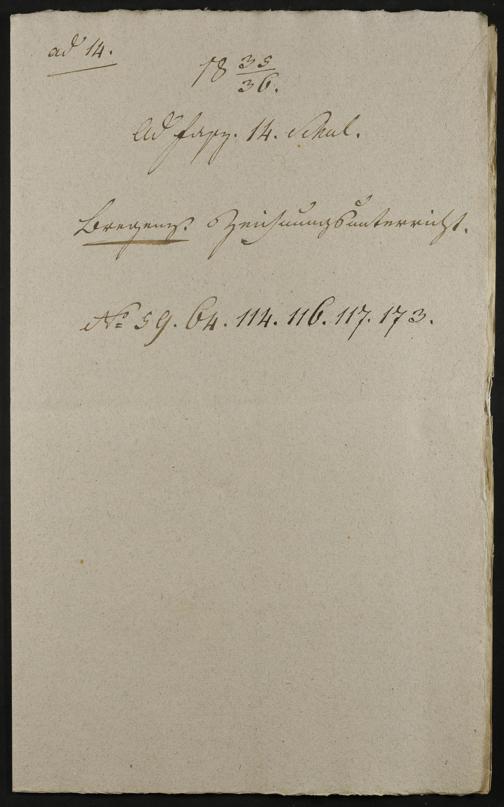 ad 14.
18 35/36.
Ad Fasz. 14. Schul.
Bregenz. Zeichnungsunterricht.
No 59. 64. 114. 116. 117. 173.